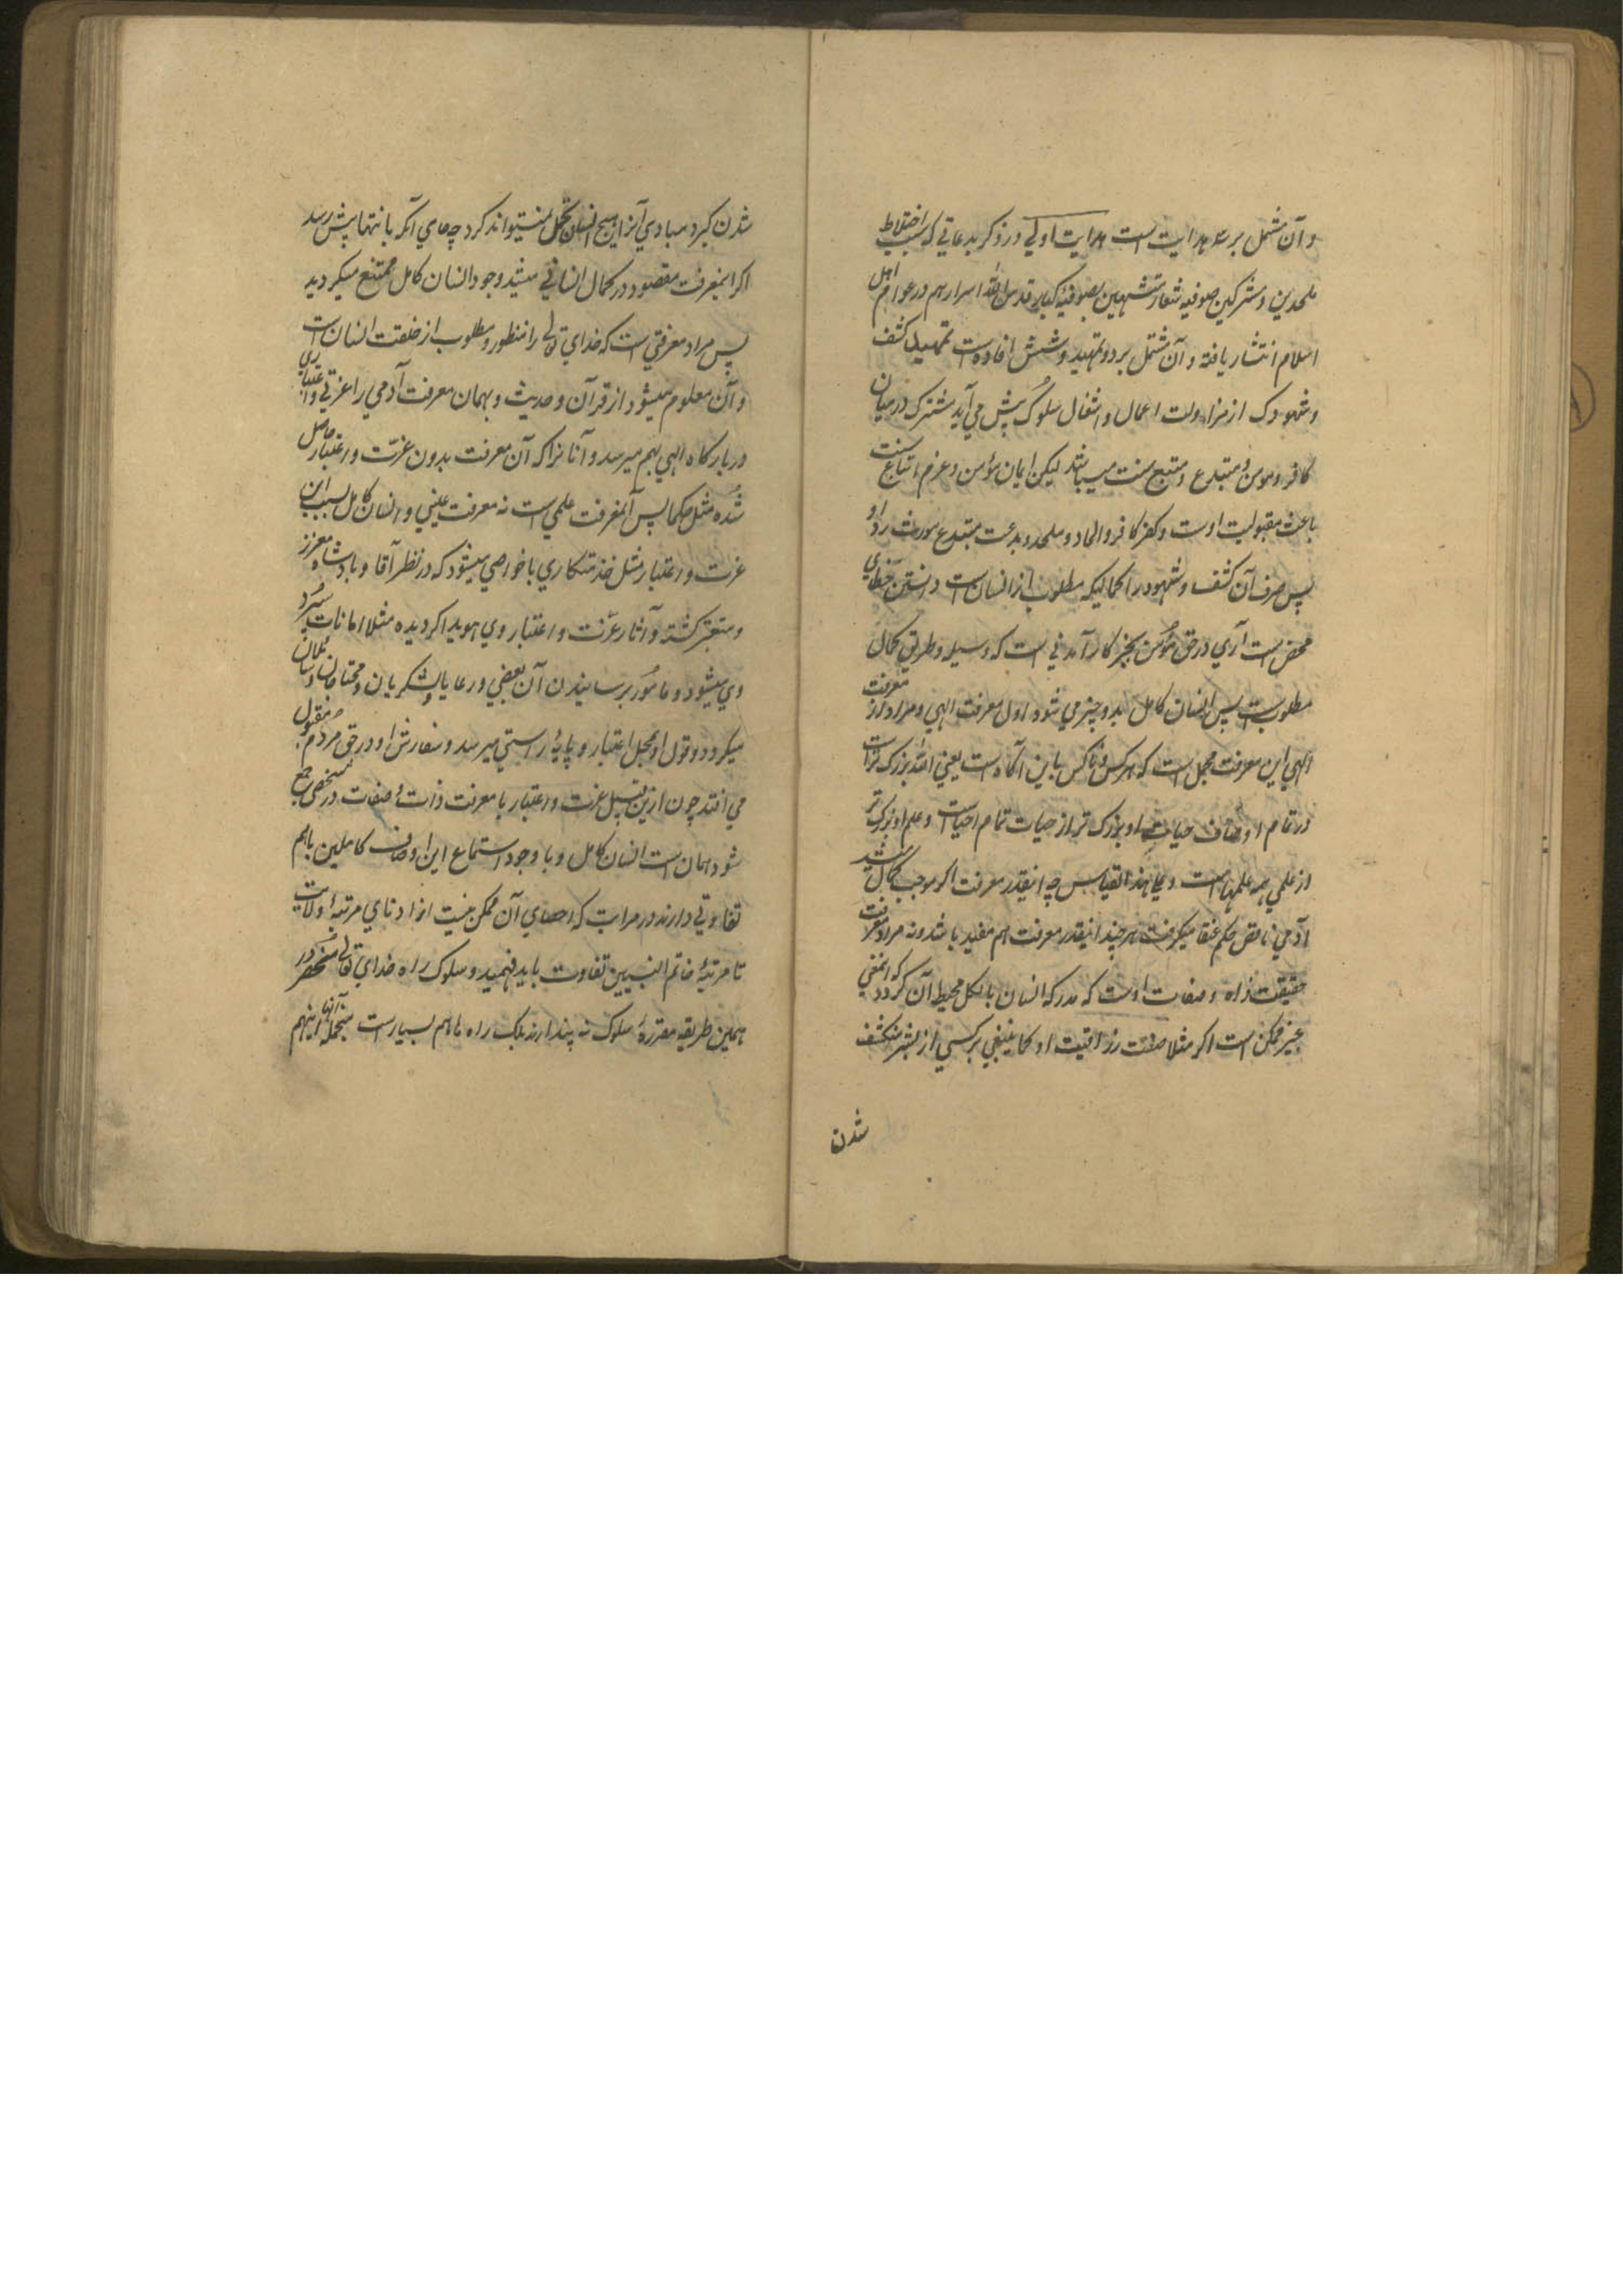 و آن مشتمل بر سه هدایت است هدایت اولی در ذکر بدعاتی که بسبب اختلاط
ملحدین و مشرکین صوفیه شعار متشبهین بصوفیهٔ کبار قدس الله اسرارهم در عوام اهل
اسلام انتشار یافته و آن مشتمل بر دو تمهید و شش افاده است تمهید کشف
و شهودی که از مزاولت اعمال و اشغال سلوک پیش می آید مشترک در میان
کافر و مومن و مبتدع و متبع سنت میباشد لیکن ایمان مؤمن و عزم اتباع سنت
باعث مقبولیت اوست و کفر کافر و الحاد ملحد و بدعت مبتدع مورث رد او
پس صرف آن کشف و شهود را کمالیکه مطلوب از انسان است دانستن خطای
محض است آری در حق مؤمن چیز کار آمدنی است که وسیله و طریق کمال
مطلوب است پس انسان کامل بدو چیز می شود اول معرفت الهی و مراد از معرفت
الهی این معرفت مجمل است که هر کس و ناکس باین آگاه است یعنی الله بزرگ تر است
در تمام اوصاف حیات او بزرگ تر از حیات تمام احیاست و علم او بزرگ تر
از علمی همه علمهاست و علی هذا القیاس چه اینقدر معرفت اگر موجب کمال شد
آدمی ناقص حکم عنقا میگرفت هر چند اینقدر معرفت هم مفید باشد و نه مراد معرفت
حقیقت ذاه و صفات اوست که مدرکه انسان بالکل محیط آن گردد که اینمعنی
غیر ممکن است اگر مثلا صفت رزاقیت او کما ینبغی بر کسی از بشر منکشف
شدن
شدن گیرد مبادی آنرا هیچ انسان تحمل نمیتواند کرد چه جای آنکه بانتهایش رسد
اگر اینمعرفت مقصود در کمال انسانی میشد وجود انسان کامل ممتنع میگردید
پس مراد معرفتی است که خدای تعالی را منظور و مطلوب از خلقت انسان است
و آن معلوم میشود از قرآن و حدیث و بهمان معرفت آدمی را عزتی و اعتباری
در بارگاه الهی بهم میرسد و آنانرا که آن معرفت بدون عزت و اعتبار حاصل
شده مثل حکما پس آنمعرفت علمی است نه معرفت عینی و انسان کامل بسبب این
عزت و اعتبار مثل خدمتگاری با خواصی میشود که در نظر آقا و بادشاه معزز
و معتبر گشته و آثار عزت و اعتبار وی هویدا گردیده مثلا امانات سپرد
وی میشود و مامور برسانیدن آن بعضی ور عایا و لشکریان و محتاجان و سائلان
میگردد و قول او محل اعتبار و پایهٔ راستی میرسد و سفارش او در حق مردم مقبول
می افتد چون ازین قبیل عزت و اعتبار با معرفت ذات و صفات در شخصی جمع
شود همان است انسان کامل و با وجود استماع این اوصاف کاملین باهم
تفاوتی دارند در مراتب که احصای آن ممکن نیست از ادنای مرتبهٔ ولایت
تا مرتبهٔ خاتم النبیین تفاوت باید فهمید و سلوک راه خدای تعالی منحصر در
همین طریقه مقررهٔ سلوک نه پندارند بلکه راه ها هم بسیارست منجمله آنها اینهم